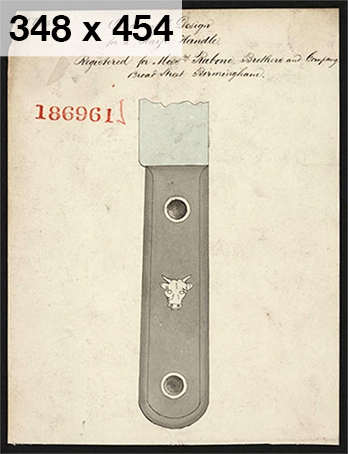 348 x 454
Design
for a Knife Handle.
Registered for Messrs Rabone, Brothers and Company
Broad Street Birmingham.
186961